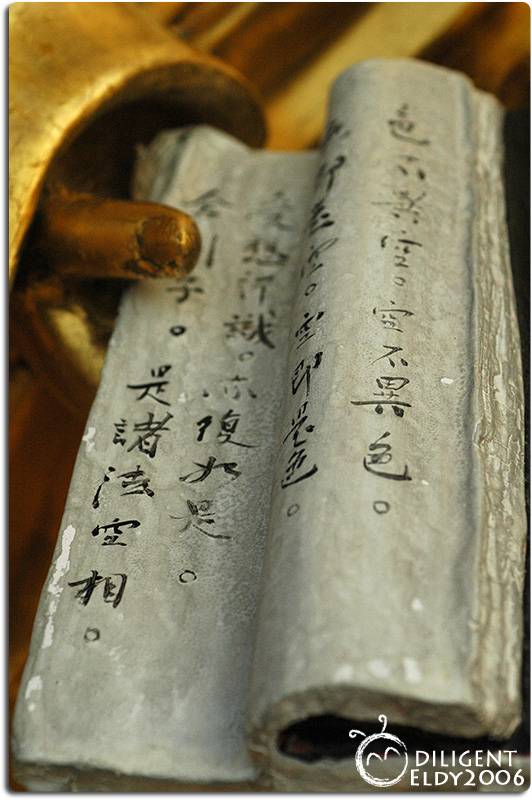 色不異空。空不異色。
色即是空。空即是色。
受想行識。亦復如是。
舍利子。是諸法空相。
DILIGENT
ELDY2006